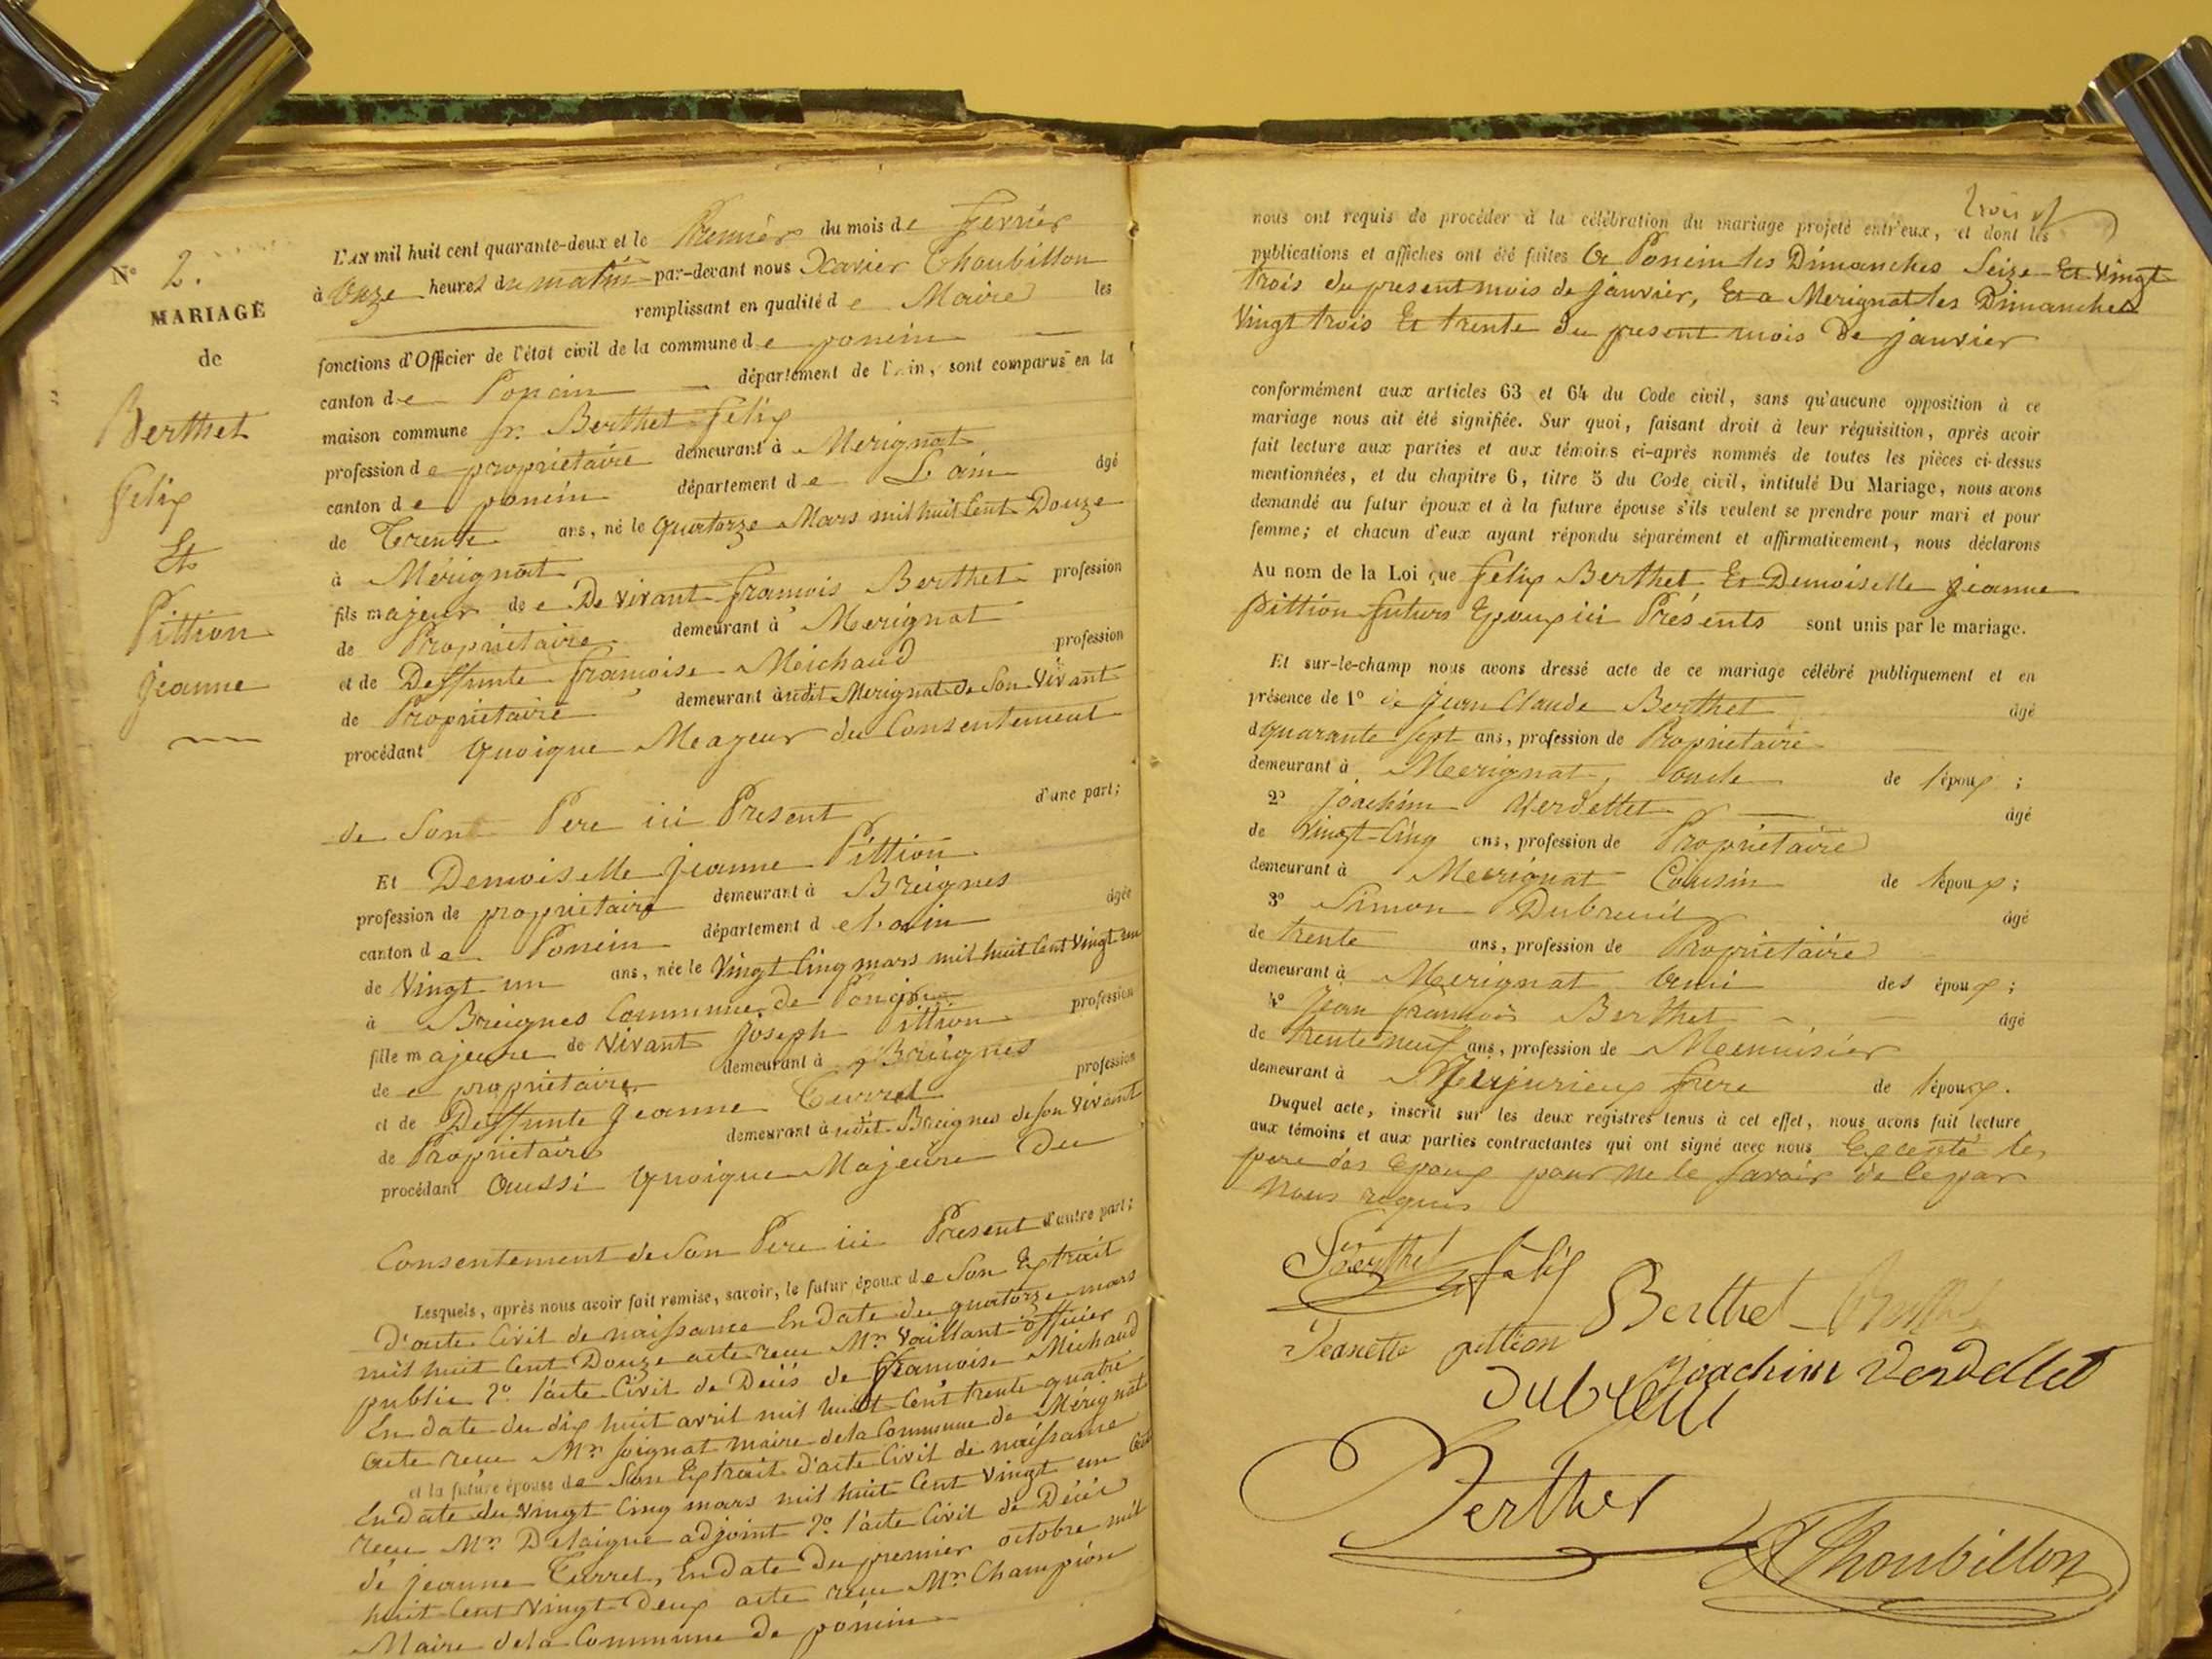 N° 2.
MARIAGE
de
Berthet
felix
Et
Pittion
jeanne
L'AN mil huit cent quarante-deux et le Premier du mois de fevrier
à Onze heures du matin par-devant nous Xavier Thoubillon
remplissant en qualité de Maire les
fonctions d'Officier de l'état civil de la commune de poncin
canton de Poncin département de l'Ain, sont comparus en la
maison commune sr. Berthet felix
profession de propriétaire demeurant à Merignat
canton de poncin département de L'ain âgé
de Trente ans, né le quatorze Mars mil huit Cent Douze
à Mérignat
fils majeur de De vivant françois Berthet profession
de Propriétaire demeurant à Merignat
et de Deffunte françoise Meichaud profession
de Propriétaire demeurant àudit Merignat de Son Vivant
procédant quoique Meajeur du Consentement
de Son Pere ici Present d'une part;
Et Demoiselle jeanne Pittion
profession de propriétaire demeurant à Breignes
canton de Poncin département de L'ain âgée
de Vingt un ans, née le Vingt Cinq mars mil huit Cent Vingt un
à Breignes Commune de Poncin
fille majeure de Vivant joseph Pittion profession
de propriétaire demeurant à Breignes
et de Deffunte jeanne Turrel profession
de Propriétaire demeurant àudit Breignes de son Vivant
procédant Aussi quoique Majeure Du
Consentement de Son Pere ici Present d'autre part;
Lesquels, après nous avoir fait remise, savoir, le futur époux de Son Extrait
D'acte Civil de naissance En date du quatorze mars
mil huit Cent Douze acte reçu Mr. Vaillant officier
public 2° l'acte Civil de Décès de françoise Michaud
En date du dix huit avril mil huit Cent trente quatre
acte reçu Mr. Soignat maire de la Commune de Mérignat
et la future épouse de Son Extrait d'acte Civil de naissance
En date du vingt Cinq mars mil huit Cent Vingt un acte
reçu Mr. Delaigue adjoint 2° l'acte Civil de Décès
de jeanne Turrel, En date Du premier octobre mil
huit Cent Vingt Deux acte reçu Mr. Champion
Maire de la Commune de poncin
trois
nous ont requis de procéder à la célébration du mariage projeté entr'eux, et dont les
publications et affiches ont été faites A Poncin les Dimanches Seize Et Vingt
trois du present mois de janvier, Et a Merignat les Dimanches
Vingt trois Et trente du present mois De janvier
conformément aux articles 63 et 64 du Code civil, sans qu'aucune opposition à ce
mariage nous ait été signifiée. Sur quoi, faisant droit à leur réquisition, après avoir
fait lecture aux parties et aux témoins ci-après nommés de toutes les pièces ci-dessus
mentionnées, et du chapitre 6, titre 5 du Code civil, intitulé Du Mariage, nous avons
demandé au futur époux et à la future épouse s'ils veulent se prendre pour mari et pour
femme; et chacun d'eux ayant répondu séparément et affirmativement, nous déclarons
Au nom de la Loi que felix Berthet Et Demoiselle jeanne
pittion futurs Epoux ici Présents sont unis par le mariage.
Et sur-le-champ nous avons dressé acte de ce mariage célébré publiquement et en
présence de 1° de jean Claude Berthet âgé
d quarante Sept ans, profession de Propriétaire
demeurant à Merignat, Oncle de l'époux;
2° joachim Verdellet âgé
de Vingt-Cinq ans, profession de Propriétaire
demeurant à Merignat Cousin de l'époux;
3° Simon Dubreuil âgé
de trente ans, profession de Propriétaire
demeurant à Merignat Ami des époux;
4° jean françois Berthet âgé
de trente neuf ans, profession de Menuisier
demeurant à Merjurieux frere de l'époux.
Duquel acte, inscrit sur les deux registres tenus à cet effet, nous avons fait lecture
aux témoins et aux parties contractantes qui ont signé avec nous Excepté les
pere des Epoux pour ne le savoir de ce par
Nous requis
Berthet felix
Berthet
Jeanette pittion
joachim Verdellet
Dubreuil
Berthet
Thoubillon